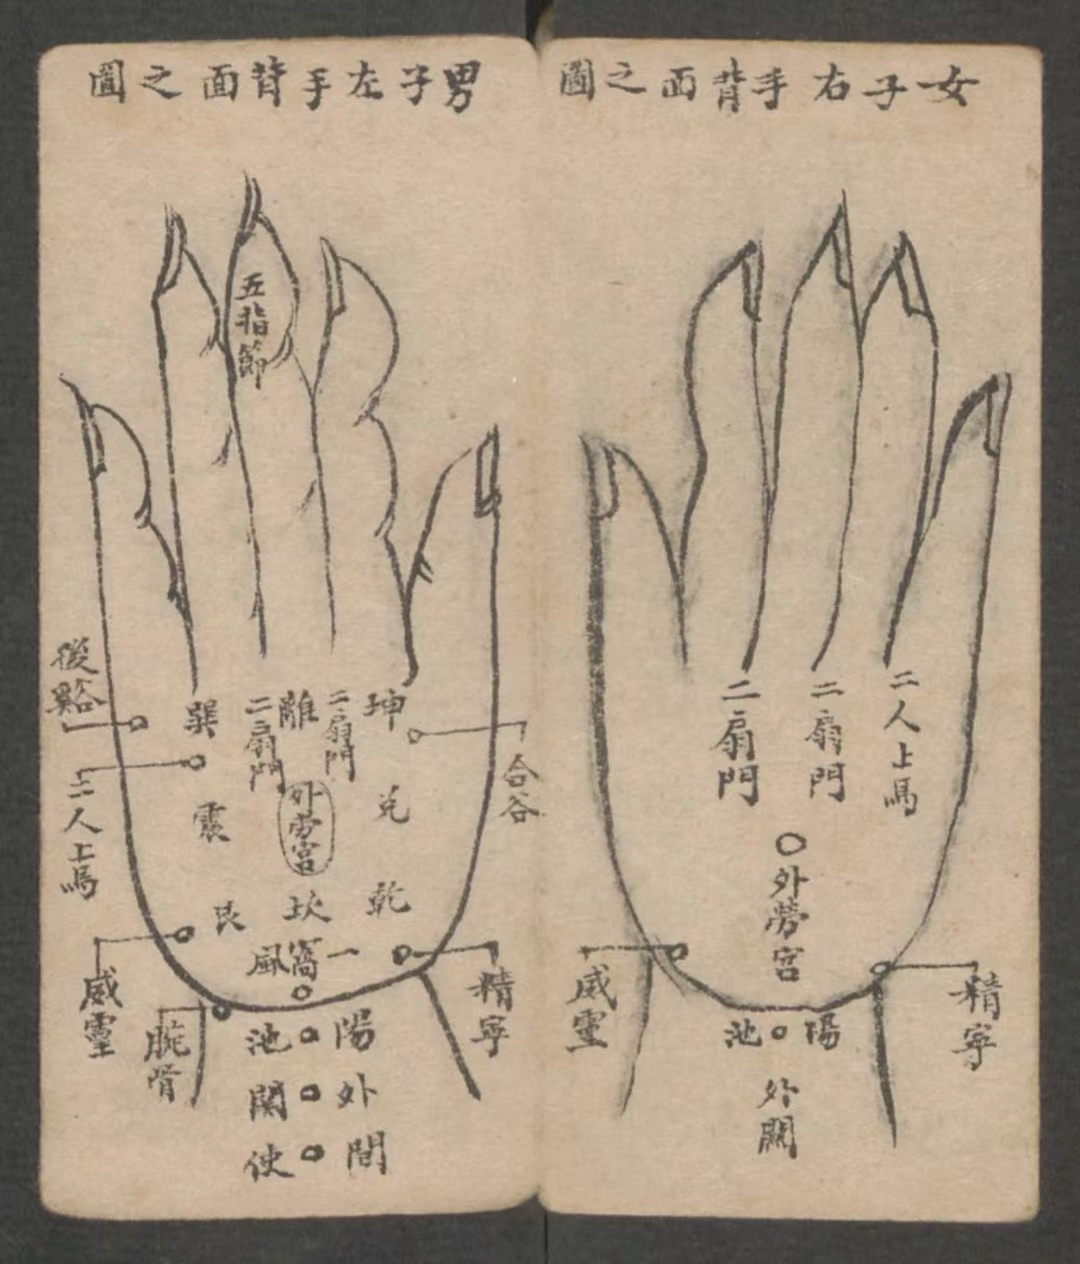 女子右手背面之圖
二人上馬
二扇門
二扇門
外勞宮
精寧
威靈
陽池
外關
男子左手背面之圖
五指節
坤
二扇門
離
二扇門
巽
後谿
合谷
二人上馬
兌
外勞宮
震
乾
坎
艮
一窩風
精寧
威靈
腕骨
陽池
外關
間使